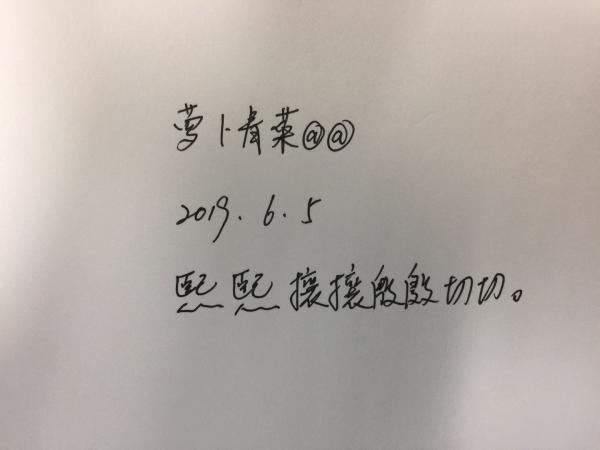 萝卜青菜@@
2019.6.5
熙熙攘攘殷殷切切。